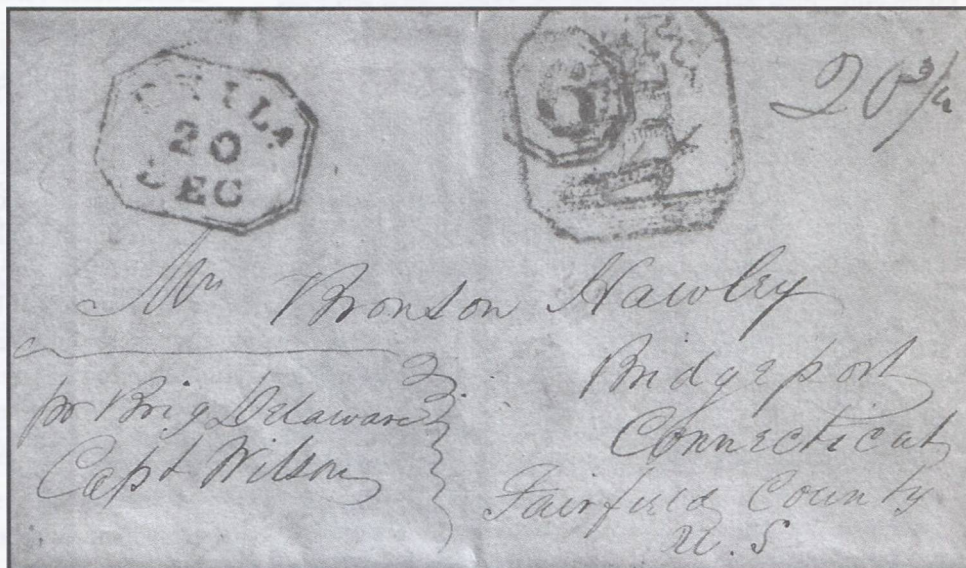 PHILA
20
DEC
20 3/4
Mr Bronson Hawley
Bridgeport
Connecticut
Fairfield County
U. S
pr Brig Delaware
Capt Wilson